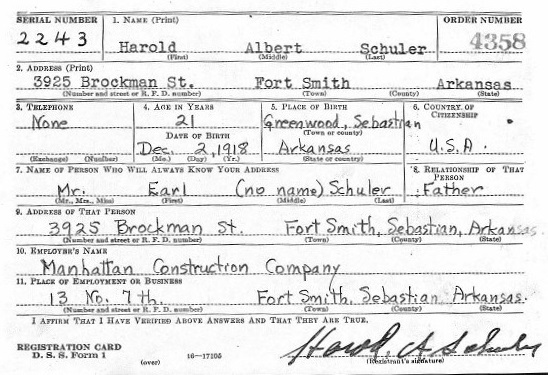 SERIAL NUMBER 1. NAME (Print) ORDER NUMBER
2243 Harold Albert Schuler 4358
(First) (Middle) (Last)
2. ADDRESS (Print)
3925 Brockman St. Fort Smith Arkansas
(Number and street or R. F. D. number) (Town) (County) (State)
3. TELEPHONE 4. AGE IN YEARS 5. PLACE OF BIRTH 6. COUNTRY OF CITIZENSHIP
None 21 Greenwood, Sebastian
DATE OF BIRTH (Town or county)
Dec. 2, 1918 Arkansas U.S.A.
(Exchange) (Number) (Mo.) (Day) (Yr.) (State or country)
7. NAME OF PERSON WHO WILL ALWAYS KNOW YOUR ADDRESS 8. RELATIONSHIP OF THAT PERSON
Mr. Earl (no name) Schuler Father
(Mr., Mrs., Miss) (First) (Middle) (Last)
9. ADDRESS OF THAT PERSON
3925 Brockman St. Fort Smith, Sebastian, Arkansas.
(Number and street or R. F. D. number) (Town) (County) (State)
10. EMPLOYER'S NAME
Manhattan Construction Company
11. PLACE OF EMPLOYMENT OR BUSINESS
13 No. 7th. Fort Smith, Sebastian Arkansas.
(Number and street or R. F. D. number) (Town) (County) (State)
I AFFIRM THAT I HAVE VERIFIED ABOVE ANSWERS AND THAT THEY ARE TRUE.
REGISTRATION CARD
D. S. S. Form 1 (over) 16—17105 Harold A Schuler
(Registrant's signature)